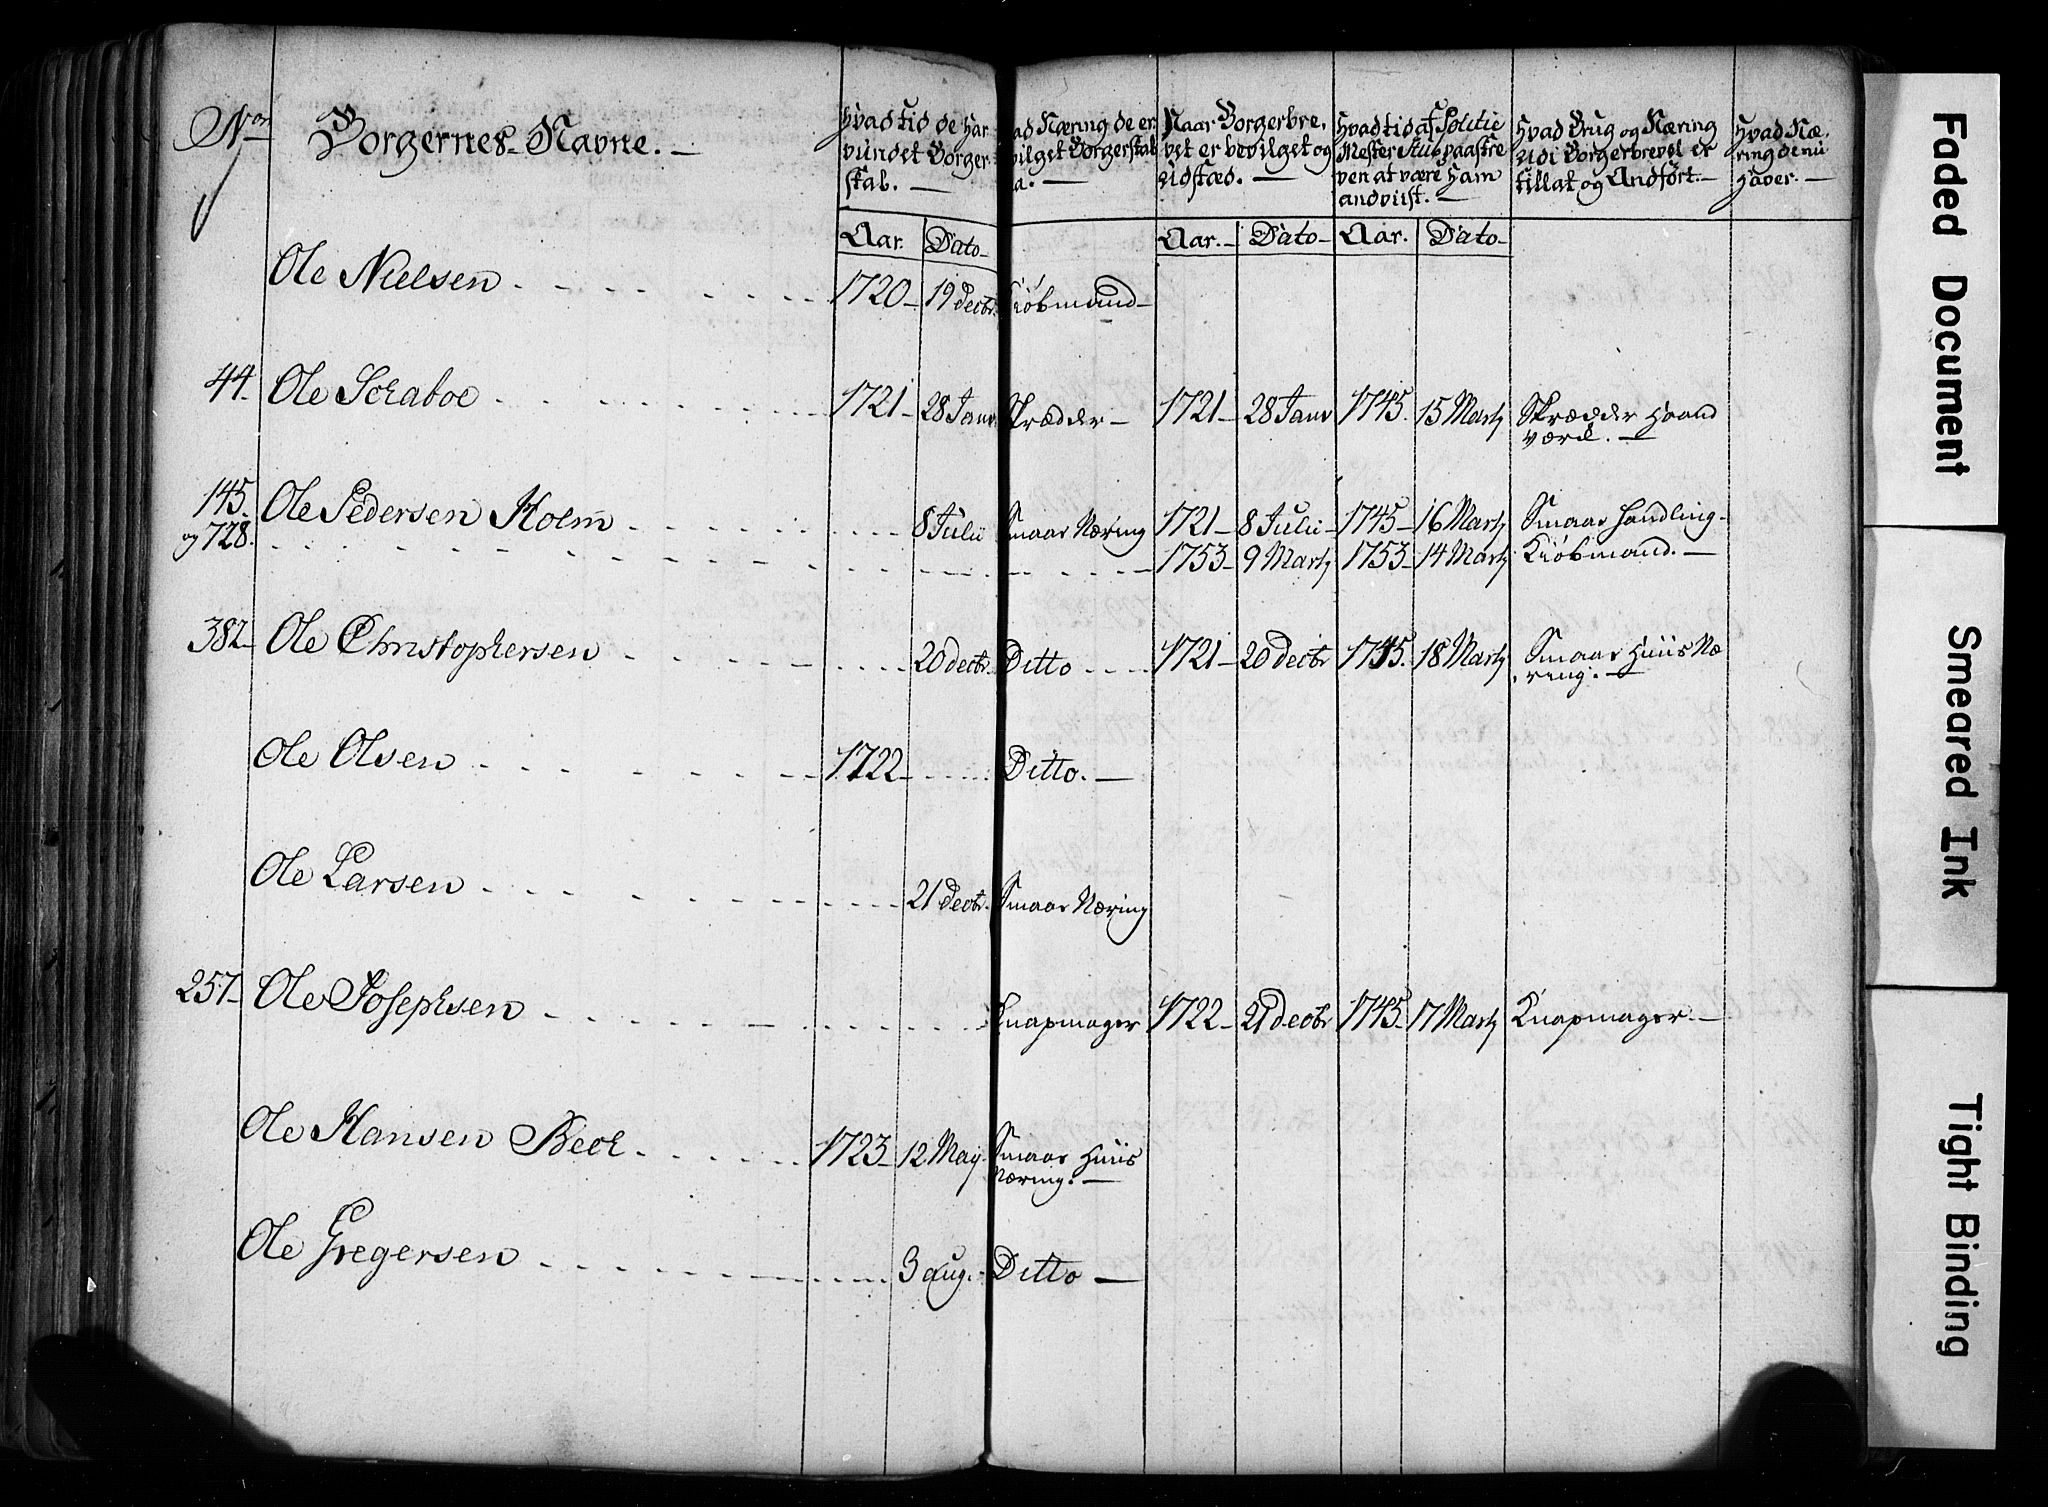 Nor
Borgernes Navne. —
Hvad tid de har
vundet Borger
skab. —
ad Næring de er
vilget Borgerskab
a. —
Naar Borgerbre,
vet er bevilget og
udstæd. —
Hvad tid af Politie
Mester
ven at være ham
andviist. —
Hvad Brug og Næring
udi Borgerbrevet er
tillat og Andført. —
Hvad Næ,
ring de nu
haver. —
Aar. Dato- Aar.- Dato- Aar. Dato-
Ole Nielsen 1720- 19 Decbr. Kiøbmand-
44. Ole Scraboe 1721- 28 Janv. Skrædder- 1721- 28 Janv 1745. 15 Marty Skrædder Haand
værk. —
145. Ole Pedersen Holm 8 Julii Smaae Næring 1721- 8 Julii- 1745- 16 Marty Smaae Handling-
og 728. 1753- 9 Marty 1753- 14 Marty Kiøbmand. —
382- Ole Christophersen 20 Decbr. Ditto 1721- 20 Decbr 1745. 18 Marty Smaae Huus Næ
ring. —
Ole Olsen 1722- Ditto. —
Ole Larsen 21 Decbr. Smaae Næring
257- Ole Josephsen Knapmager 1722- 21 Decbr 1745- 17 Marty Knapmager. —
Ole Hansen Beck 1723- 12 May. Smaae Huus
Næring. —
Ole Gregersen 3 aug. Ditto —
Faded Document
Smeared Ink
Tight Binding